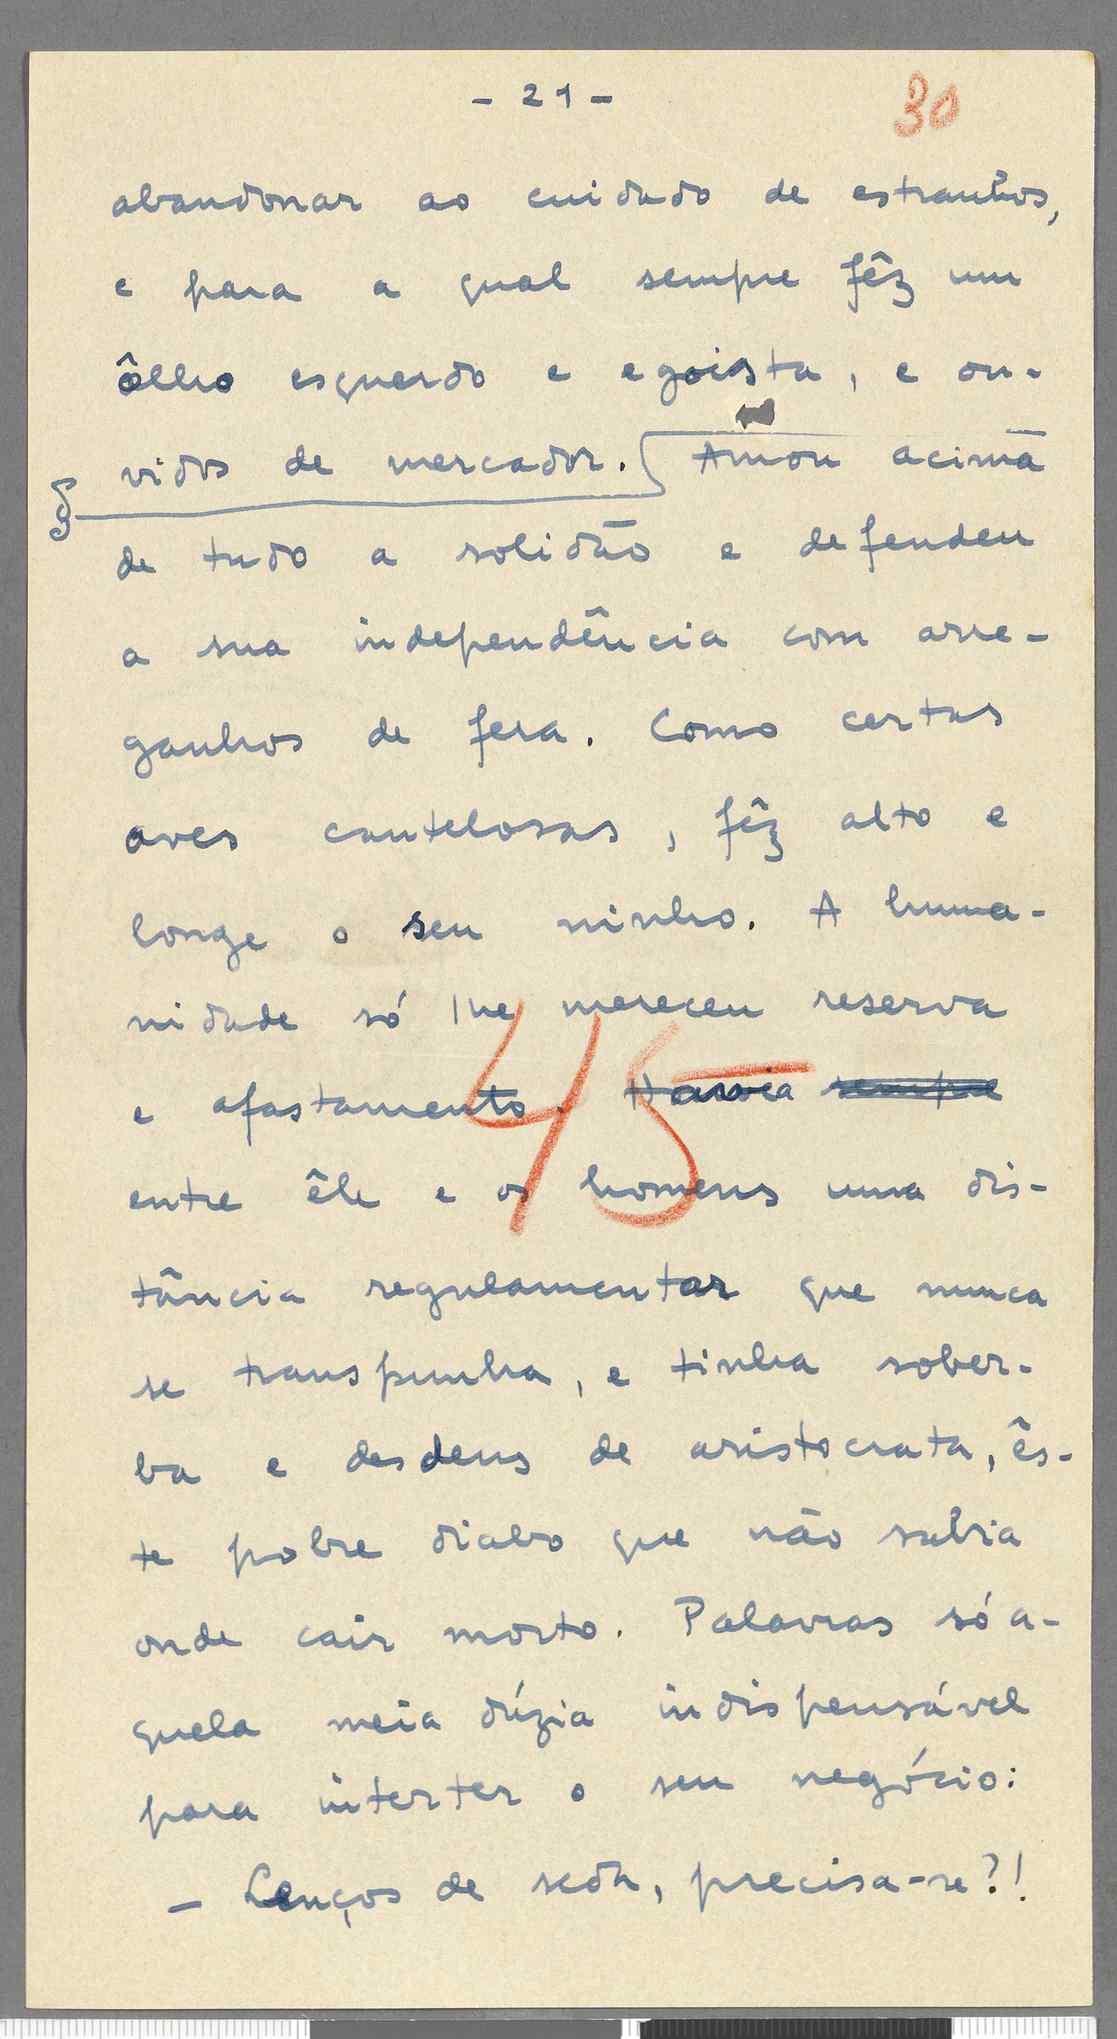 - 21 -
30
abandonar ao cuidado de estranhos,
e para a qual sempre fêz um
ôlho esquerdo e egoista, e ou-
vidos de mercador. Amou acima
de tudo a solidão e defendeu
a sua independência com arre-
ganhos de fera. Como certas
aves cautelosas, fêz alto e
longe o seu ninho. A huma-
nidade só lhe mereceu reserva
e afastamento. Havia sempre
45
entre êle e os homens uma dis-
tância regulamentar que nunca
se transpunha, e tinha sober-
ba e desdens de aristocrata, ês-
te pobre diabo que não sabia
onde cair morto. Palavras só a-
quela meia dúzia indispensável
para interter o seu negócio:
- Lenços de seda, precisa-se?!